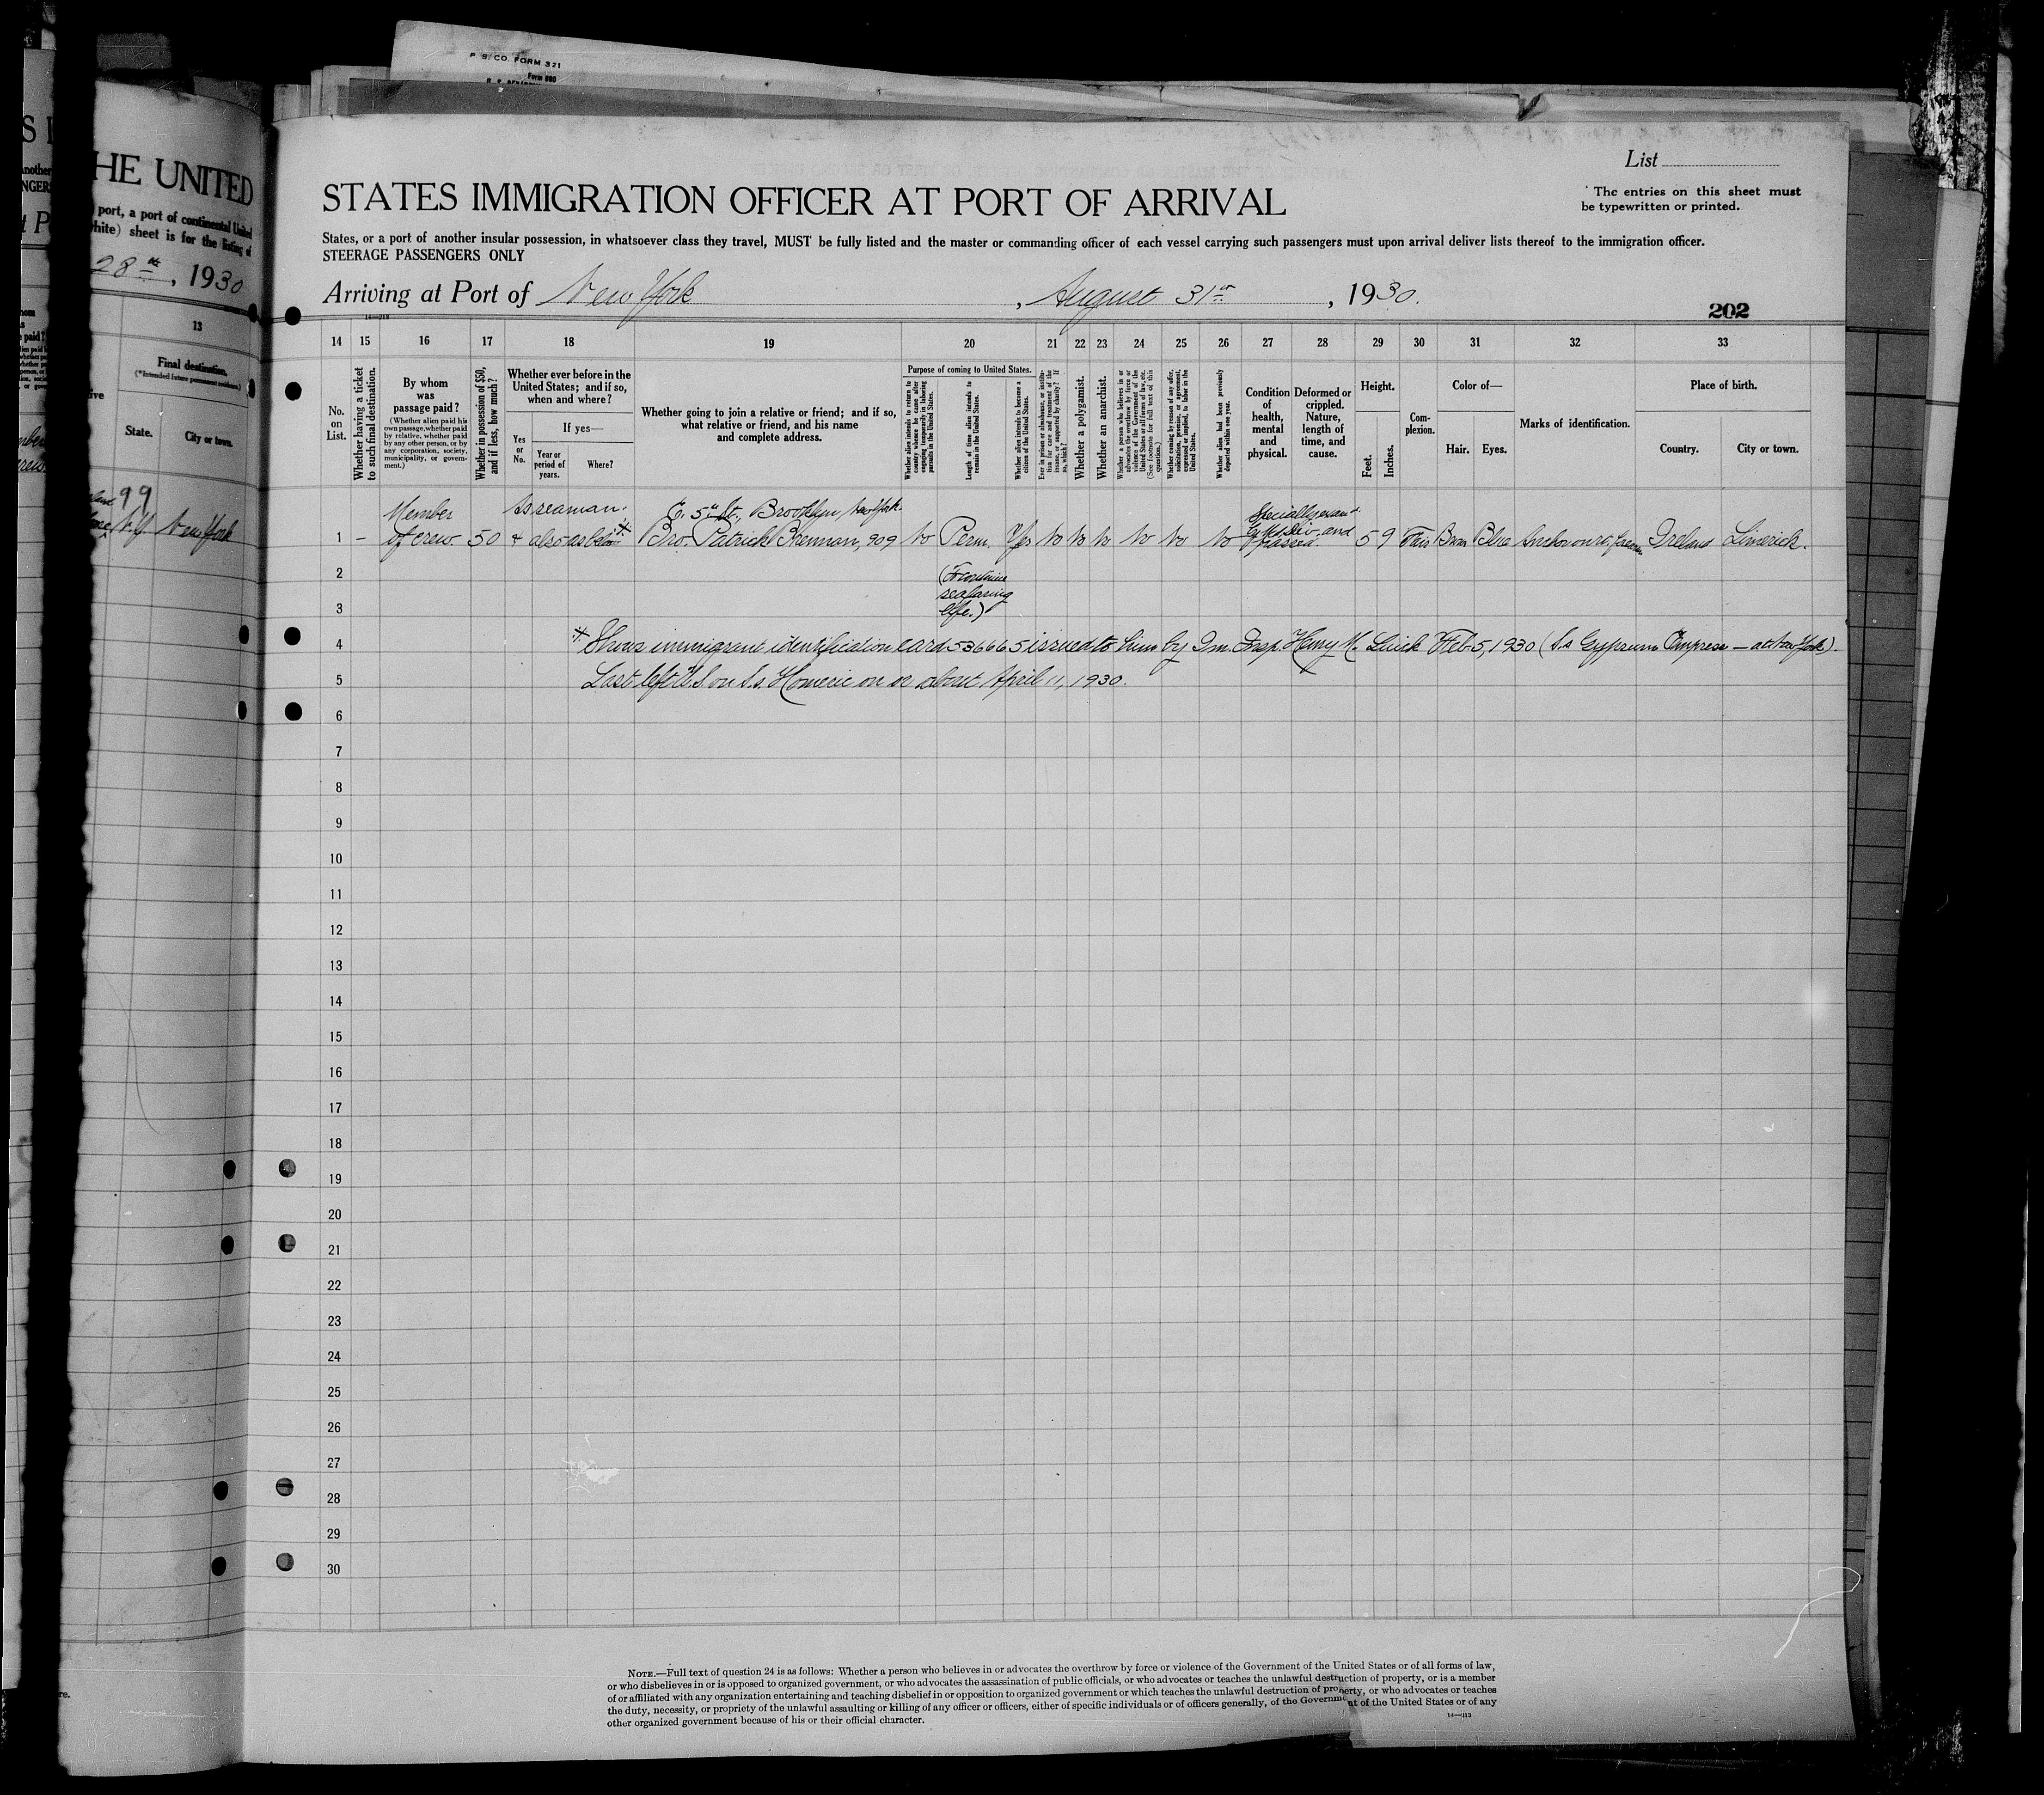 P. S. CO. FORM 321
Form 680
HE UNITED
port, a port of continental United
white) sheet is for the listing of
28th, 1930
13
Final destination.
(*Intended future permanent residence.)
State.
City or town.
99
N.Y. New York
List
STATES IMMIGRATION OFFICER AT PORT OF ARRIVAL
The entries on this sheet must
be typewritten or printed.
States, or a port of another insular possession, in whatsoever class they travel, MUST be fully listed and the master or commanding officer of each vessel carrying such passengers must upon arrival deliver lists thereof to the immigration officer.
STEERAGE PASSENGERS ONLY
Arriving at Port of New York, August 31st, 1930.
202
14—313
14 15 16 17 18 19 20 21 22 23 24 25 26 27 28 29 30 31 32 33
No. on List.
Whether having a ticket to such final destination.
By whom was passage paid?
(Whether alien paid his own passage, whether paid by relative, whether paid by any other person, or by any corporation, society, municipality, or government.)
Whether in possession of $50, and if less, how much?
Whether ever before in the United States; and if so, when and where?
Yes or No.
If yes—
Year or period of years.
Where?
Whether going to join a relative or friend; and if so, what relative or friend, and his name and complete address.
Purpose of coming to United States.
Whether alien intends to return to country whence he came after engaging temporarily in laboring pursuits in the United States.
Length of time alien intends to remain in the United States.
Whether alien intends to become a citizen of the United States.
Ever in prison or almshouse, or institution for care and treatment of the insane, or supported by charity? If so, which?
Whether a polygamist.
Whether an anarchist.
Whether a person who believes in or advocates the overthrow by force or violence of the Government of the United States or all forms of law, etc. (See footnote for full text of this question.)
Whether coming by reason of any offer, solicitation, promise, or agreement, expressed or implied, to labor in the United States.
Whether alien had been previously deported within one year.
Condition of health, mental and physical.
Deformed or crippled. Nature, length of time, and cause.
Height.
Feet.
Inches.
Complexion.
Color of—
Hair.
Eyes.
Marks of identification.
Place of birth.
Country.
City or town.
Member As seaman. E. 5th St., Brooklyn, New York. Specially exam'd
1 – of crew. 50 & also as below* Bro. Patrick Brennan, 909 No Perm. Yes No No No No No No by Med Div. and passed. 5 9 Fair Brn Blue Anchor on rt. forearm Ireland Limerick.
2 (To continue
3 seafaring life.)
4 * Shows immigrant identification card 536665 issued to him by Im. Insp. Henry M. Luick Feb. 5, 1930 (S.s Gypsum Empress — at New York).
5 Last left U.S. on S.s. Homeric on or about April 11, 1930.
6
7
8
9
10
11
12
13
14
15
16
17
18
19
20
21
22
23
24
25
26
27
28
29
30
NOTE.—Full text of question 24 is as follows: Whether a person who believes in or advocates the overthrow by force or violence of the Government of the United States or of all forms of law,
or who disbelieves in or is opposed to organized government, or who advocates the assassination of public officials, or who advocates or teaches the unlawful destruction of property, or is a member
of or affiliated with any organization entertaining and teaching disbelief in or opposition to organized government or which teaches the unlawful destruction of property, or who advocates or teaches
the duty, necessity, or propriety of the unlawful assaulting or killing of any officer or officers, either of specific individuals or of officers generally, of the Government of the United States or of any
other organized government because of his or their official character.
14—313